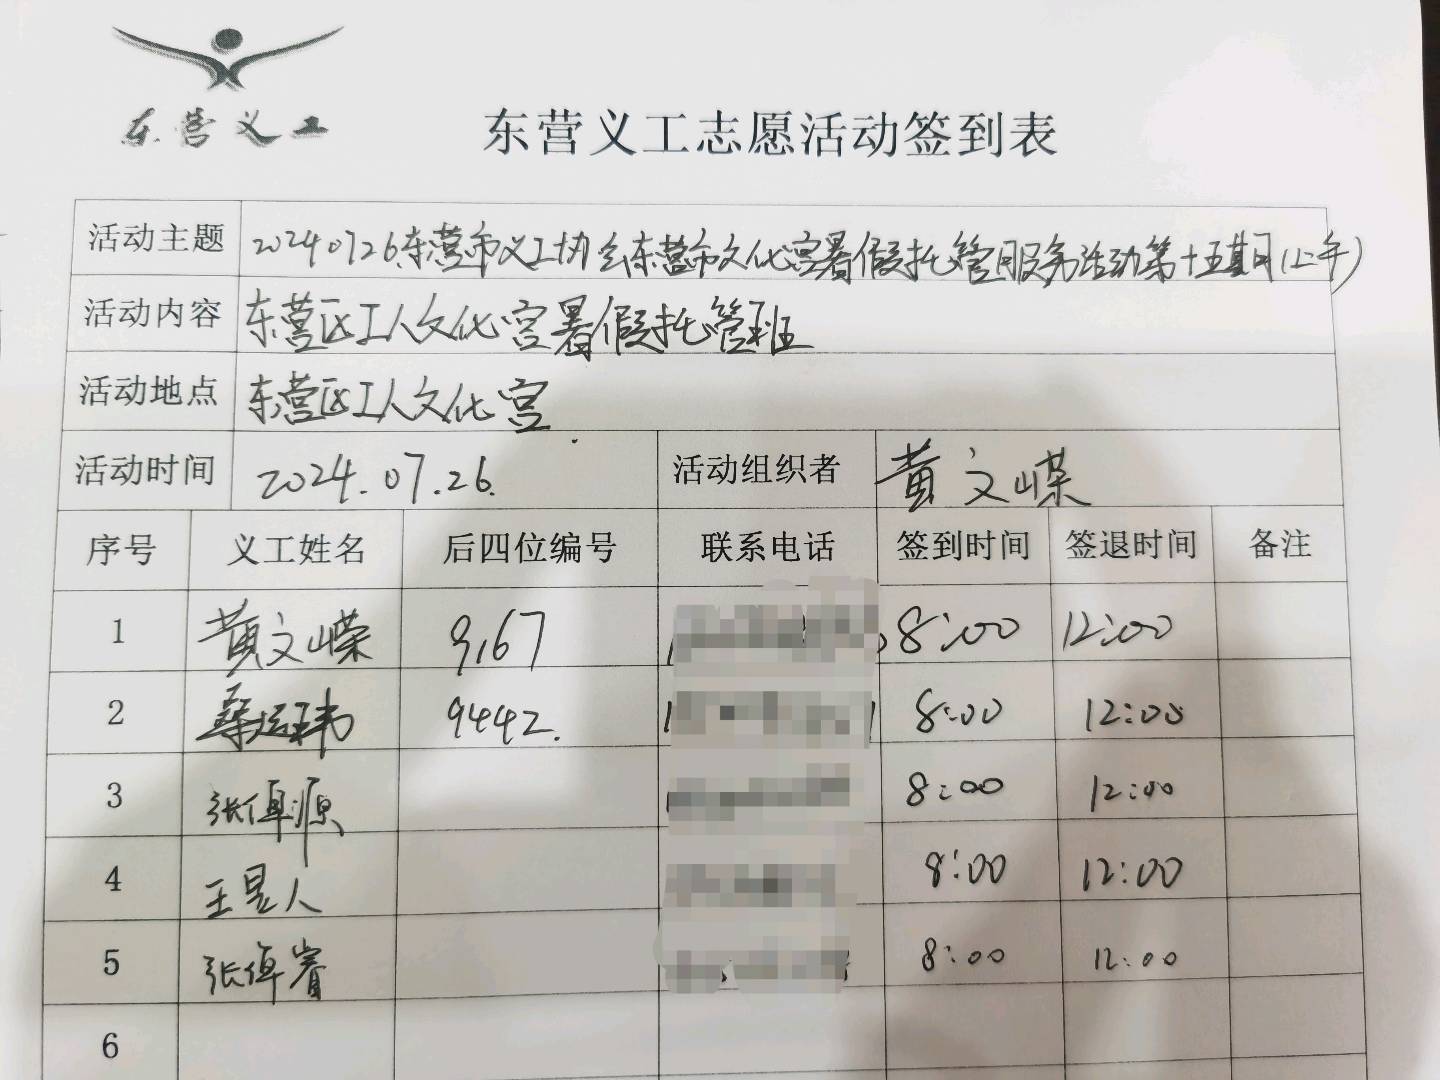 东营义工
东营义工志愿活动签到表
活动主题 20240726东营市义工协会东营市文化宫暑假托管服务活动第十五期(上午)
活动内容 东营区工人文化宫暑假托管班
活动地点 东营区工人文化宫
活动时间 2024.07.26. 活动组织者 黄文嵘
序号 义工姓名 后四位编号 联系电话 签到时间 签退时间 备注
1 黄文嵘 9167 8:00 12:00
2 桑运玮 9442. 8:00 12:00
3 张倬源 8:00 12:00
4 王昱人 8:00 12:00
5 张倬睿 8:00 12:00
6